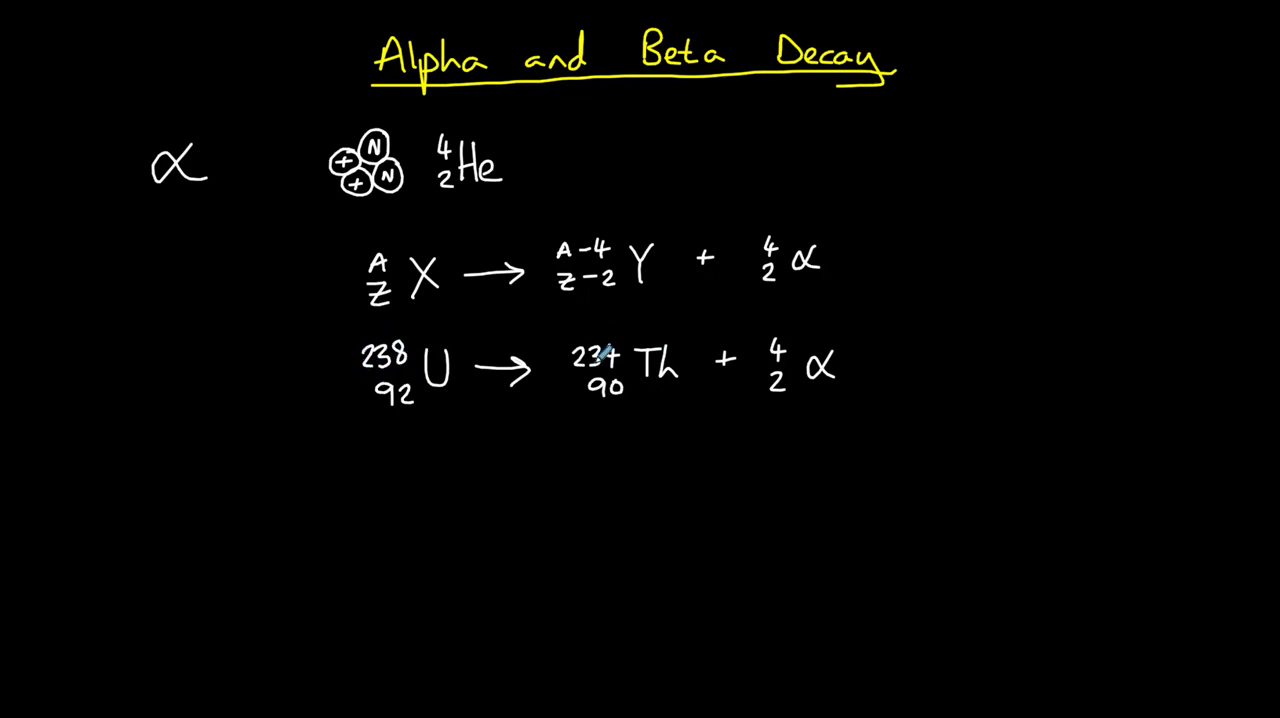 Alpha and Beta Decay
α + N + N ⁴₂He
ᴬ_Z X → ᴬ⁻⁴_Z₋₂ Y + ⁴₂ α
²³⁸₉₂ U → ²³⁴₉₀ Th + ⁴₂ α